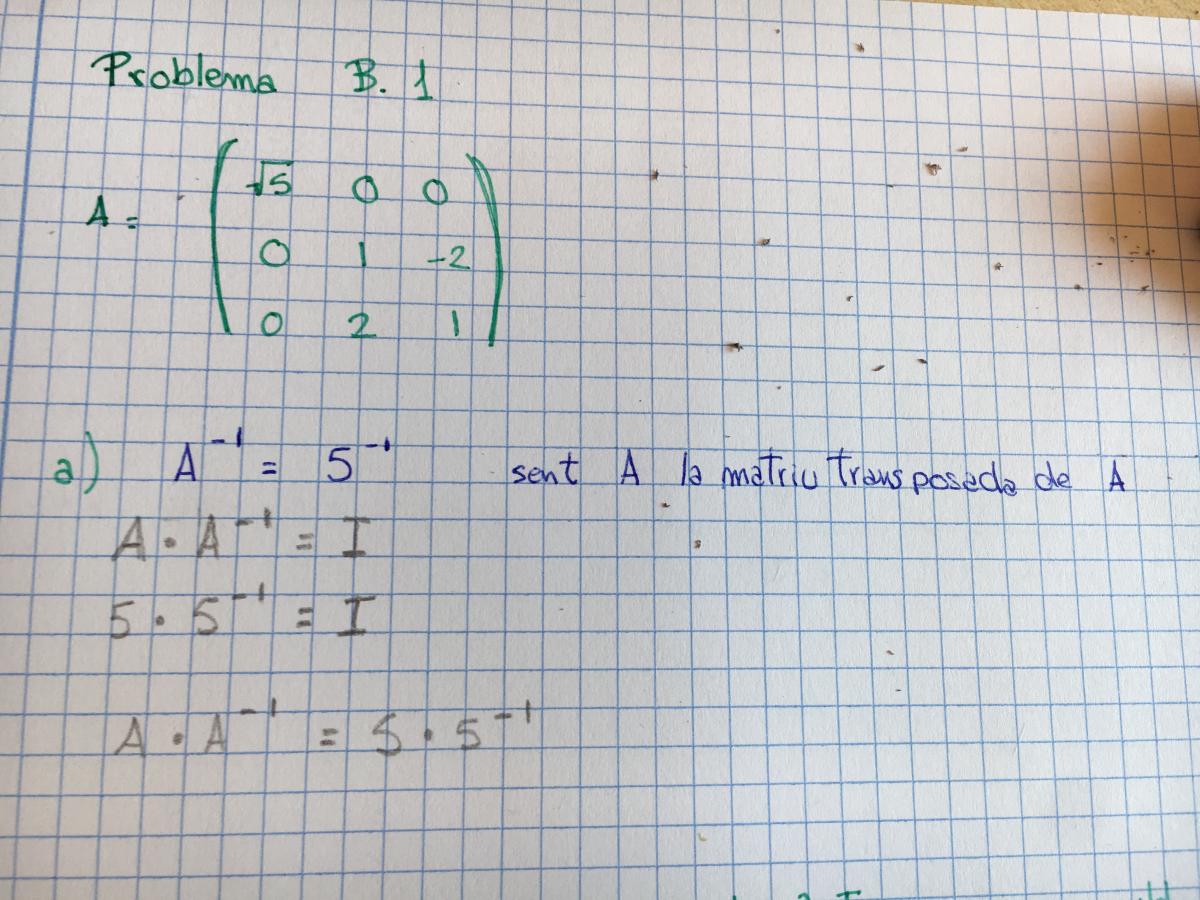 Problema B. 1
A = ( √5 0 0
0 1 -2
0 2 1 )
a) A⁻¹ = 5⁻¹ sent A la matriu transposada de A
A · A⁻¹ = I
5 · 5⁻¹ = I
A · A⁻¹ = 5 · 5⁻¹